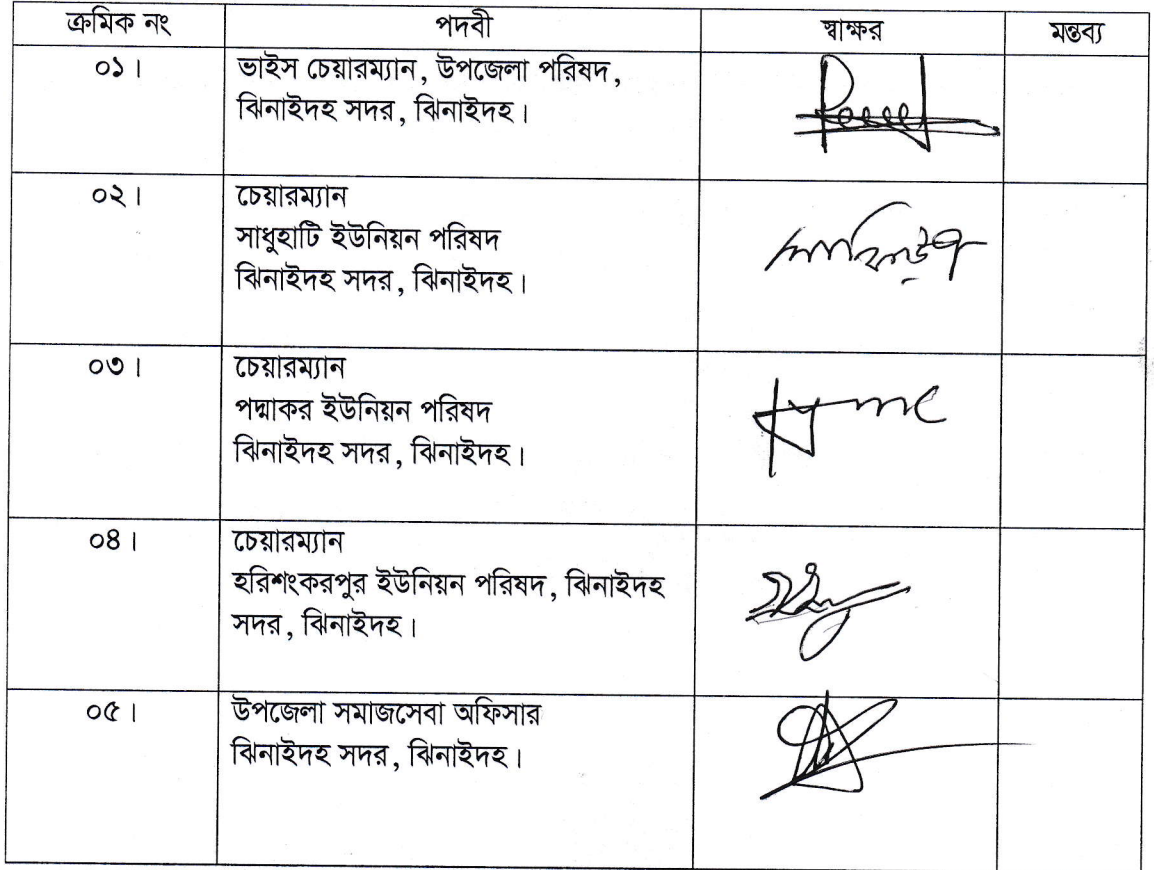 ক্রমিক নং পদবী স্বাক্ষর মন্তব্য
০১। ভাইস চেয়ারম্যান, উপজেলা পরিষদ,
ঝিনাইদহ সদর, ঝিনাইদহ।
০২। চেয়ারম্যান
সাধুহাটি ইউনিয়ন পরিষদ
ঝিনাইদহ সদর, ঝিনাইদহ।
০৩। চেয়ারম্যান
পদ্মাকর ইউনিয়ন পরিষদ
ঝিনাইদহ সদর, ঝিনাইদহ।
০৪। চেয়ারম্যান
হরিশংকরপুর ইউনিয়ন পরিষদ, ঝিনাইদহ
সদর, ঝিনাইদহ।
০৫। উপজেলা সমাজসেবা অফিসার
ঝিনাইদহ সদর, ঝিনাইদহ।